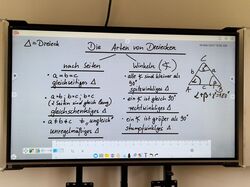 Δ = Dreieck
Die Arten von Dreiecken
nach Seiten
• a=b=c
gleichseitiges Δ
• a=b; b=c;
(2 Seiten sind gleich lang)
gleichschenkliges Δ
• a≠b≠c "ungleich"
unregelmäßiges Δ
Winkeln (∡)
• alle ∡ sind kleiner als 90°
spitzwinkliges Δ
• ein ∡ ist gleich 90°
rechtwinkliges Δ
• ein ∡ ist größer als 90°
stumpfwinkliges Δ
C
b
a
A
c
B